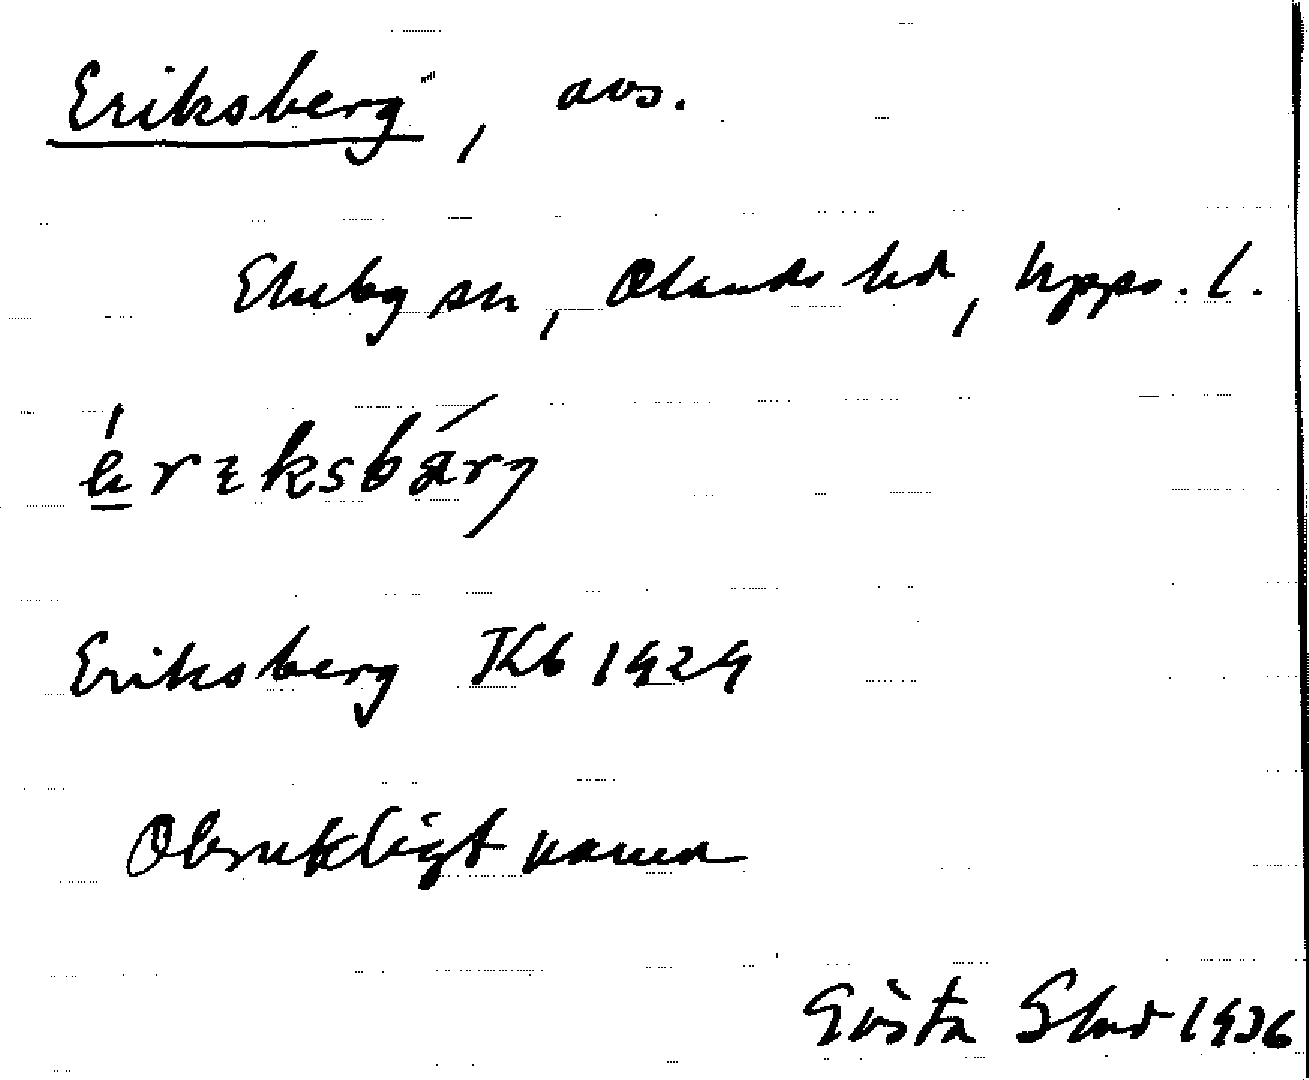 Eriksberg, avs.
Ekeby sn, Olands hd, Upps. l.
Eriksberg Kb 1929
Obrukligt namn
Gösta 1936